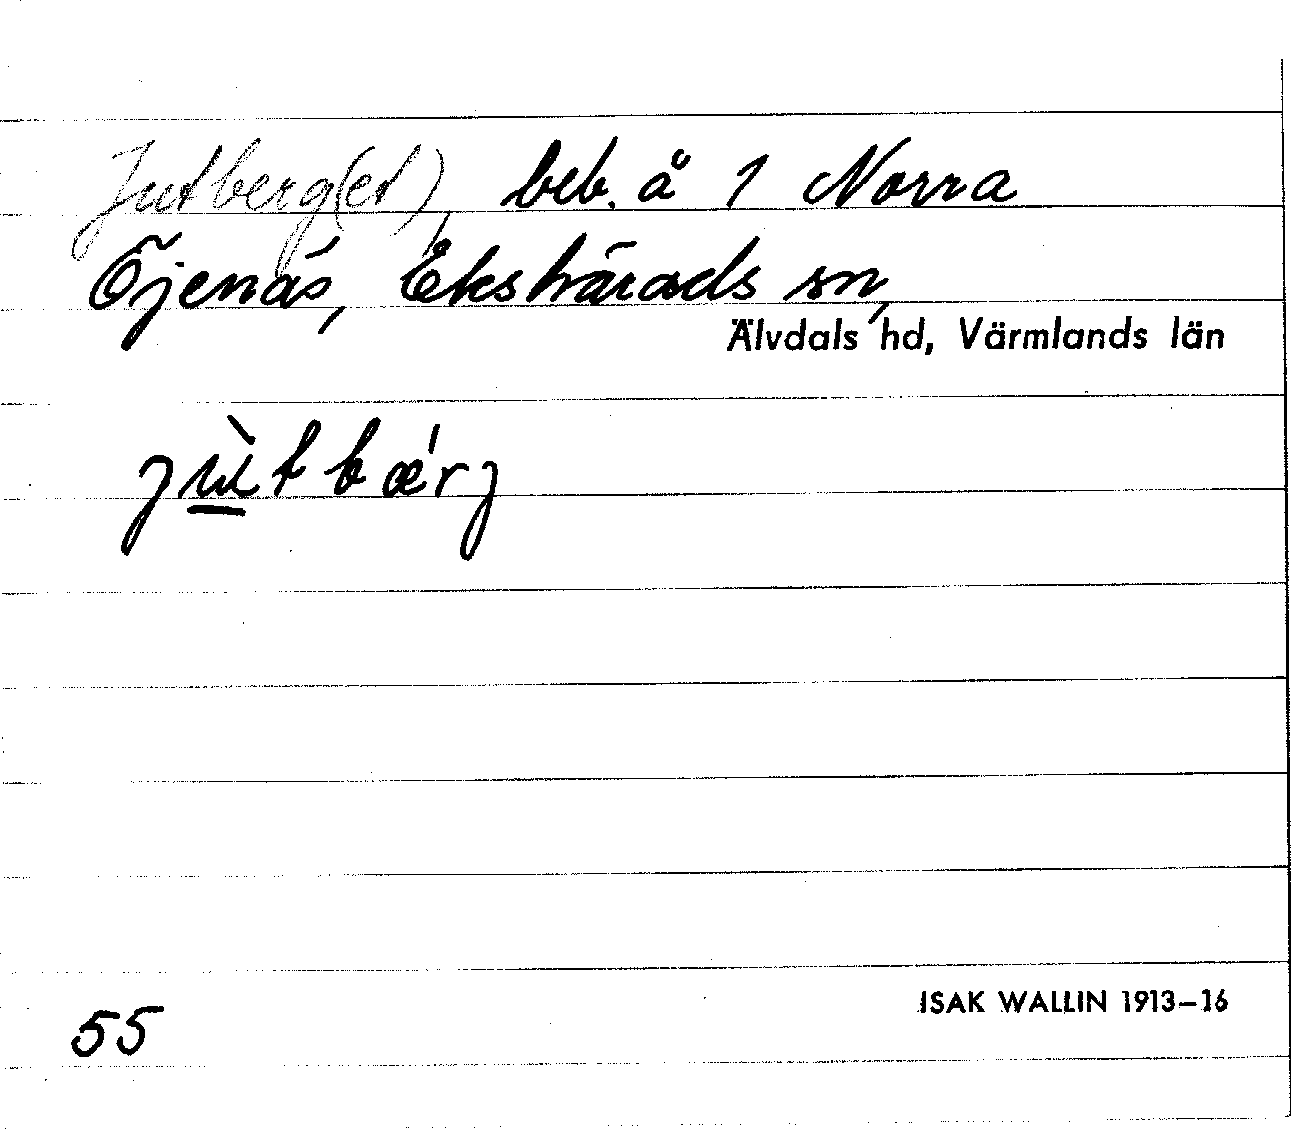 Jutberg(et), beb. å 1 Norra
Öjenäs, Ekshärads sn,
Älvdals hd, Värmlands län
jùtbǽrj
55
ISAK WALLIN 1913–16